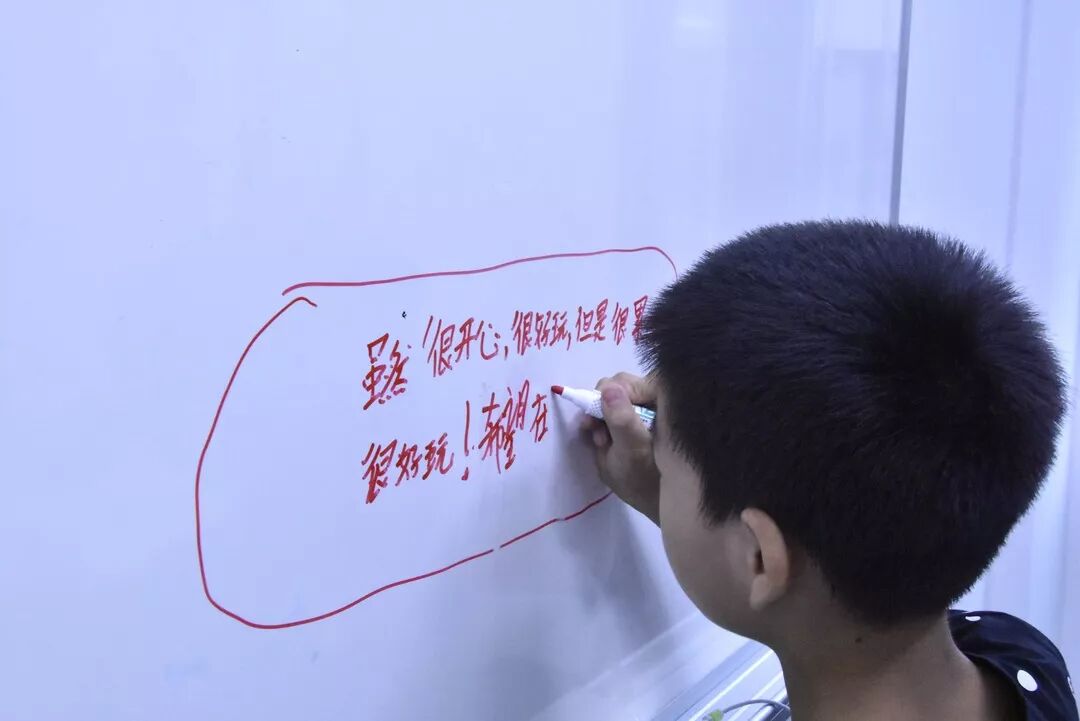 虽然很开心,很好玩,但是很累
很好玩!希望在